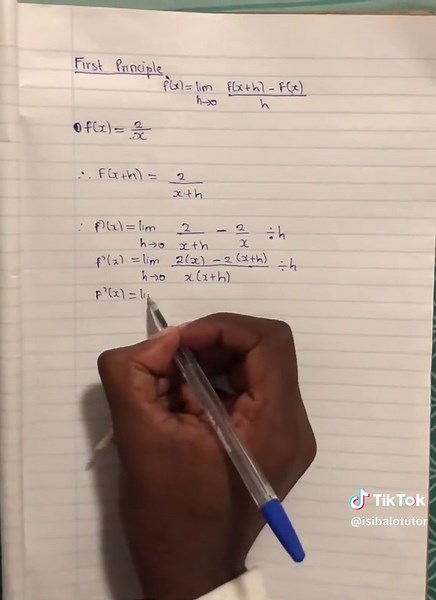 First Principle
f'(x) = lim h→0 f(x+h) - F(x) / h
① f(x) = 2/x
∴ F(x+h) = 2 / x+h
∴ F'(x) = lim h→0 2 / x+h - 2/x ÷h
F'(x) = lim h→0 2(x) - 2(x+h) / x(x+h) ÷h
F'(x) = li
TikTok
@isibalotutor